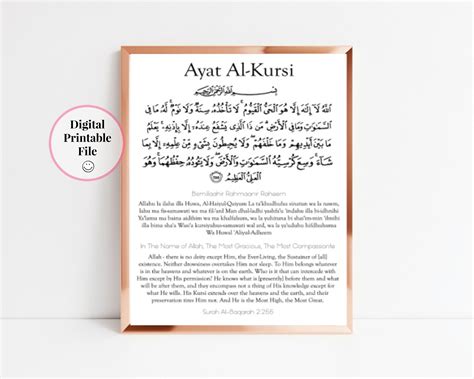 Ayat Al-Kursi
بسم الله الرحمن الرحيم
اللَّهُ لَا إِلَٰهَ إِلَّا هُوَ الْحَيُّ الْقَيُّومُ ۚ لَا تَأْخُذُهُ سِنَةٌ وَلَا نَوْمٌ ۚ لَهُ مَا فِي
السَّمَاوَاتِ وَمَا فِي الْأَرْضِ ۗ مَنْ ذَا الَّذِي يَشْفَعُ عِنْدَهُ إِلَّا بِإِذْنِهِ ۚ يَعْلَمُ
مَا بَيْنَ أَيْدِيهِمْ وَمَا خَلْفَهُمْ ۖ وَلَا يُحِيطُونَ بِشَيْءٍ مِنْ عِلْمِهِ إِلَّا بِمَا
شَاءَ ۚ وَسِعَ كُرْسِيُّهُ السَّمَاوَاتِ وَالْأَرْضَ ۖ وَلَا يَئُودُهُ حِفْظُهُمَا ۚ وَهُوَ
الْعَلِيُّ الْعَظِيمُ
Digital
Printable
File
Bismillaahir Rahmaanir Raheem
Allahu la ilaha illa Huwa, Al-Haiyul-Qaiyum La ta'khudhuhu sinatun wa la nawm,
lahu ma fis-samawati wa ma fil-'ard Man dhal-ladhi yashfa'u 'indahu illa bi-idhnihi
Ya'lamu ma baina aidihim wa ma khalfahum, wa la yuhituna bi-shai'im-min 'ilmihi
illa bima sha'a Wasi'a kursiyuhus-samawati wal ard, wa la ya'uduhu hifdhuhuma
Wa Huwal 'Aliyul-Adheem
In The Name of Allah, The Most Gracious, The Most Compassionate
Allah - there is no deity except Him, the Ever-Living, the Sustainer of [all]
existence. Neither drowsiness overtakes Him nor sleep. To Him belongs whatever
is in the heavens and whatever is on the earth. Who is it that can intercede with
Him except by His permission? He knows what is [presently] before them and what
will be after them, and they encompass not a thing of His knowledge except for
what He wills. His Kursi extends over the heavens and the earth, and their
preservation tires Him not. And He is the Most High, the Most Great.
Surah Al-Baqarah 2:255